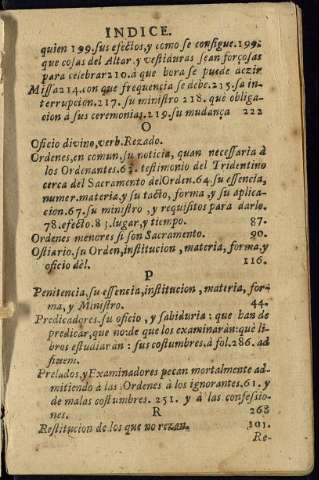 INDICE.
quien 199. sus efectos, y como se consigue. 199.
que cosas del Altar, y vestiduras sean forçosas
para celebrar 210. à que hora se puede dezir
Missa 214. con que frequencia se debe. 215. sa in-
terrupcion. 217. su ministro 218. que obliga-
cion à sus ceremonias. 219. su mudança 222
O
Oficio divino, verb. Rezado.
Ordenes, en comun. su noticia, quan necessaria à
los Ordenantes. 63. testimonio del Tridentino
cerca del Sacramento del Orden. 64. su essencia,
numer. materia, y su tacto, forma, y su aplica-
cion. 67. su ministro, y requisitos para darlo.
78. efecto. 83. lugar, y tiempo. 87.
Ordenes menores si son Sacramento. 90.
Ostiario. su Orden, institucion, materia, forma, y
oficio dèl. 116.
P
Penitencia, su essencia, institucion, materia, for-
ma, y Ministro. 44.
Predicadores. su oficio, y sabiduria: que han de
predicar, que no: de que los examinaràn: què li-
bros estudiaràn: sus costumbres. à fol. 286. ad
finem.
Prelados, y Examinadores pecan mortalmente ad-
mitiendo à las Ordenes à los ignorantes. 61. y
de malas costumbres. 251. y à las confessio-
nes. 263
R
Restitucion de los que no rezan. 101.
Re-